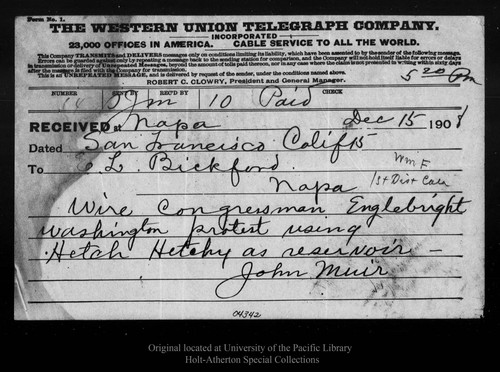 Form No. 1.
THE WESTERN UNION TELEGRAPH COMPANY.
INCORPORATED
23,000 OFFICES IN AMERICA. CABLE SERVICE TO ALL THE WORLD.
This Company TRANSMITS and DELIVERS messages only on conditions limiting its liability, which have been assented to by the sender of the following message.
Errors can be guarded against only by repeating a message back to the sending station for comparison, and the Company will not hold itself liable for errors or delays
in transmission or delivery of Unrepeated Messages, beyond the amount of tolls paid thereon, nor in any case where the claim is not presented in writing within sixty days
after the message is filed with the Company for transmission.
This is an UNREPEATED MESSAGE, and is delivered by request of the sender, under the conditions named above.
ROBERT C. CLOWRY, President and General Manager.
5 20 Pm
NUMBER SENT BY REC'D BY CHECK
Jm 10 Paid
RECEIVED at Napa Dec 15 1908
Dated San Francisco Calif 15
To E L. Bickford
Napa
Wm F
1st Dist Cal
Wire Congressman Englebright
Washington protest using
Hetch Hetchy as reservoir —
John Muir
04342
Original located at University of the Pacific Library
Holt-Atherton Special Collections